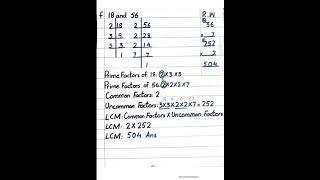 f 18 and 56
R.W
2 18 2 56
3 9 2 28
3 3 2 14
1 7 7
1
36
× 7
252
× 2
504
Prime Factors of 18: 2×3×3
Prime Factors of 56: 2×2×2×7
Common Factors: 2
Uncommon Factors: 3×3×2×2×7=252
LCM: Common Factors X Uncommon Factors
LCM: 2 X 252
LCM: 504 Ans